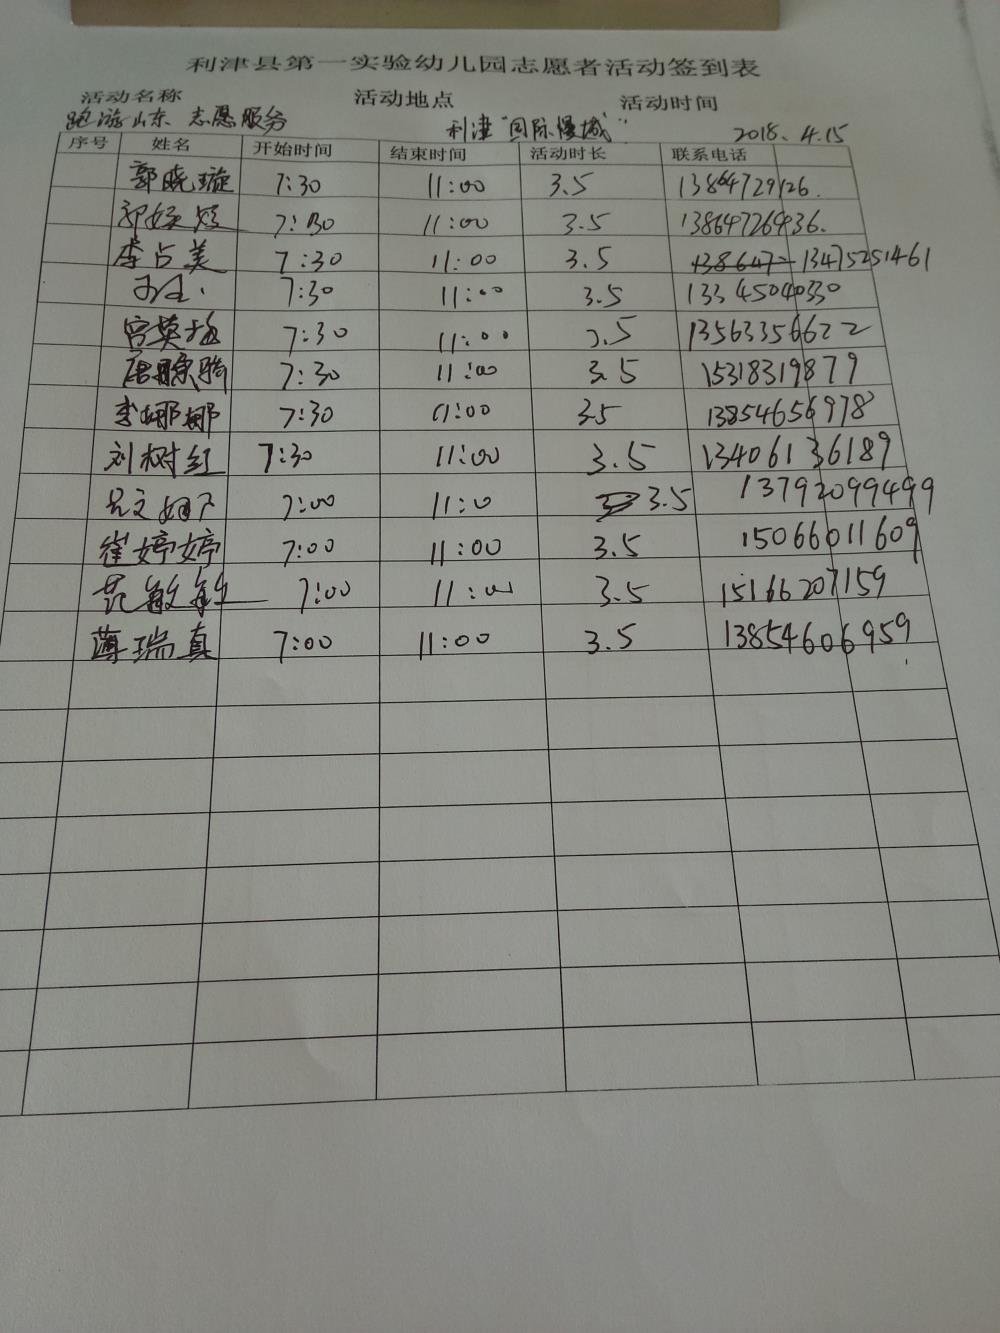 利津县第一实验幼儿园志愿者活动签到表
活动名称 活动地点 活动时间
跑游山东 志愿服务 利津"国际慢城" 2018.4.15
序号 姓名 开始时间 结束时间 活动时长 联系电话
郭晓璇 7:30 11:00 3.5 13864729126.
7:30 11:00 3.5 13864726436.
李占美 7:30 11:00 3.5 13475251461
7:30 11:00 3.5 13345040330
宫英梅 7:30 11:00 3.5 13563356622
7:30 11:00 3.5 15318319879
李娜娜 7:30 11:00 3.5 13854656978
刘树红 7:30 11:00 3.5 13406136189
7:00 11:0 3.5 13792099499
崔婷婷 7:00 11:00 3.5 15066011609
敏敏 7:00 11:00 3.5 15166207159
薄瑞真 7:00 11:00 3.5 13854606959